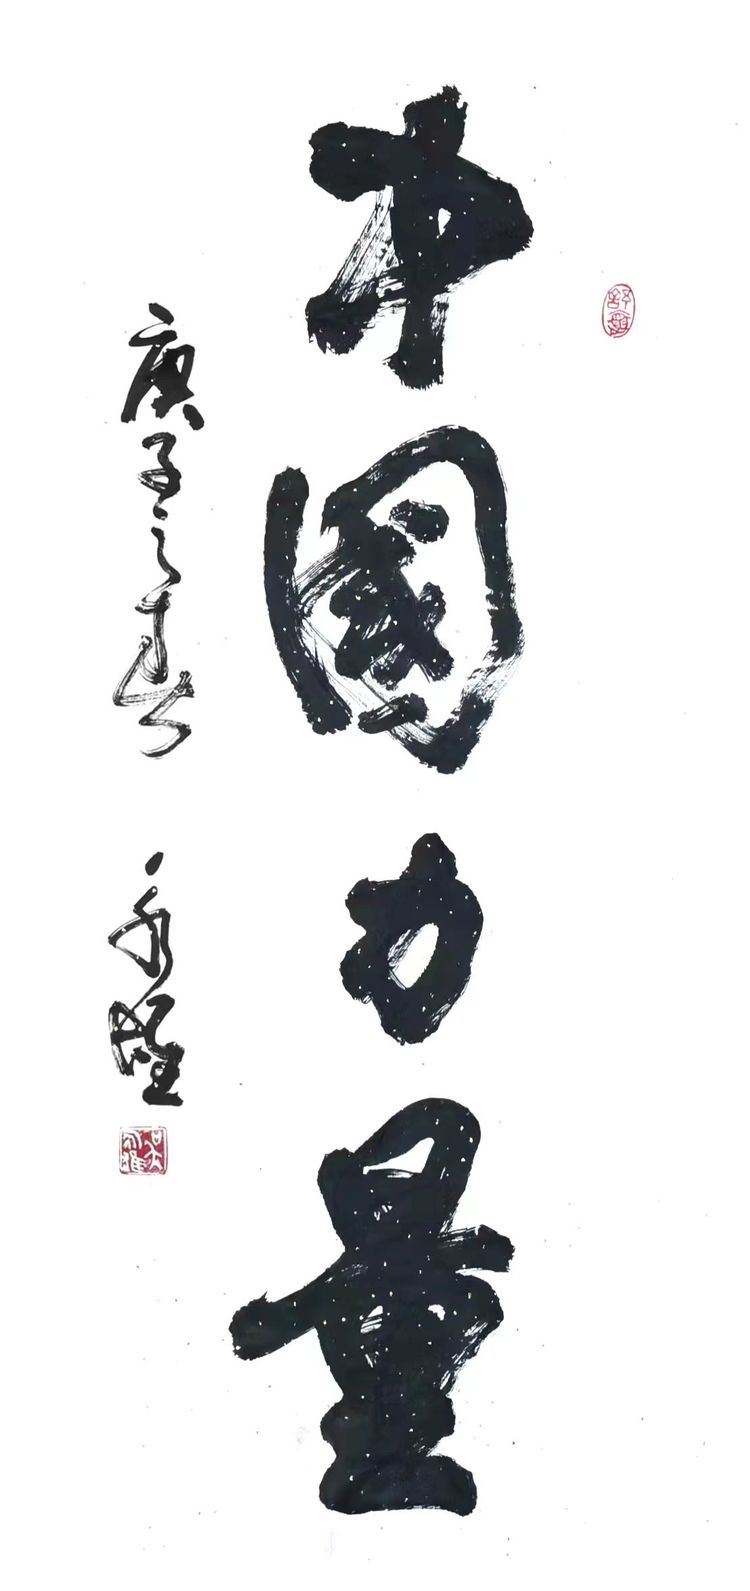 中國力量
庚子之春 永